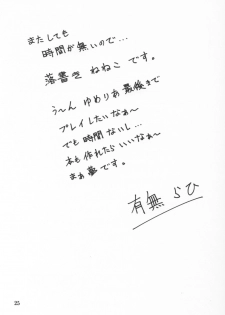 またしても
時間が無いので…
落書き ねねこ です。
う〜ん ゆめりあ 最後まで
プレイしたいなぁ〜
でも時間ないし…
本も作れたらいいなぁ〜
まぁ夢です。
有無らひ
25